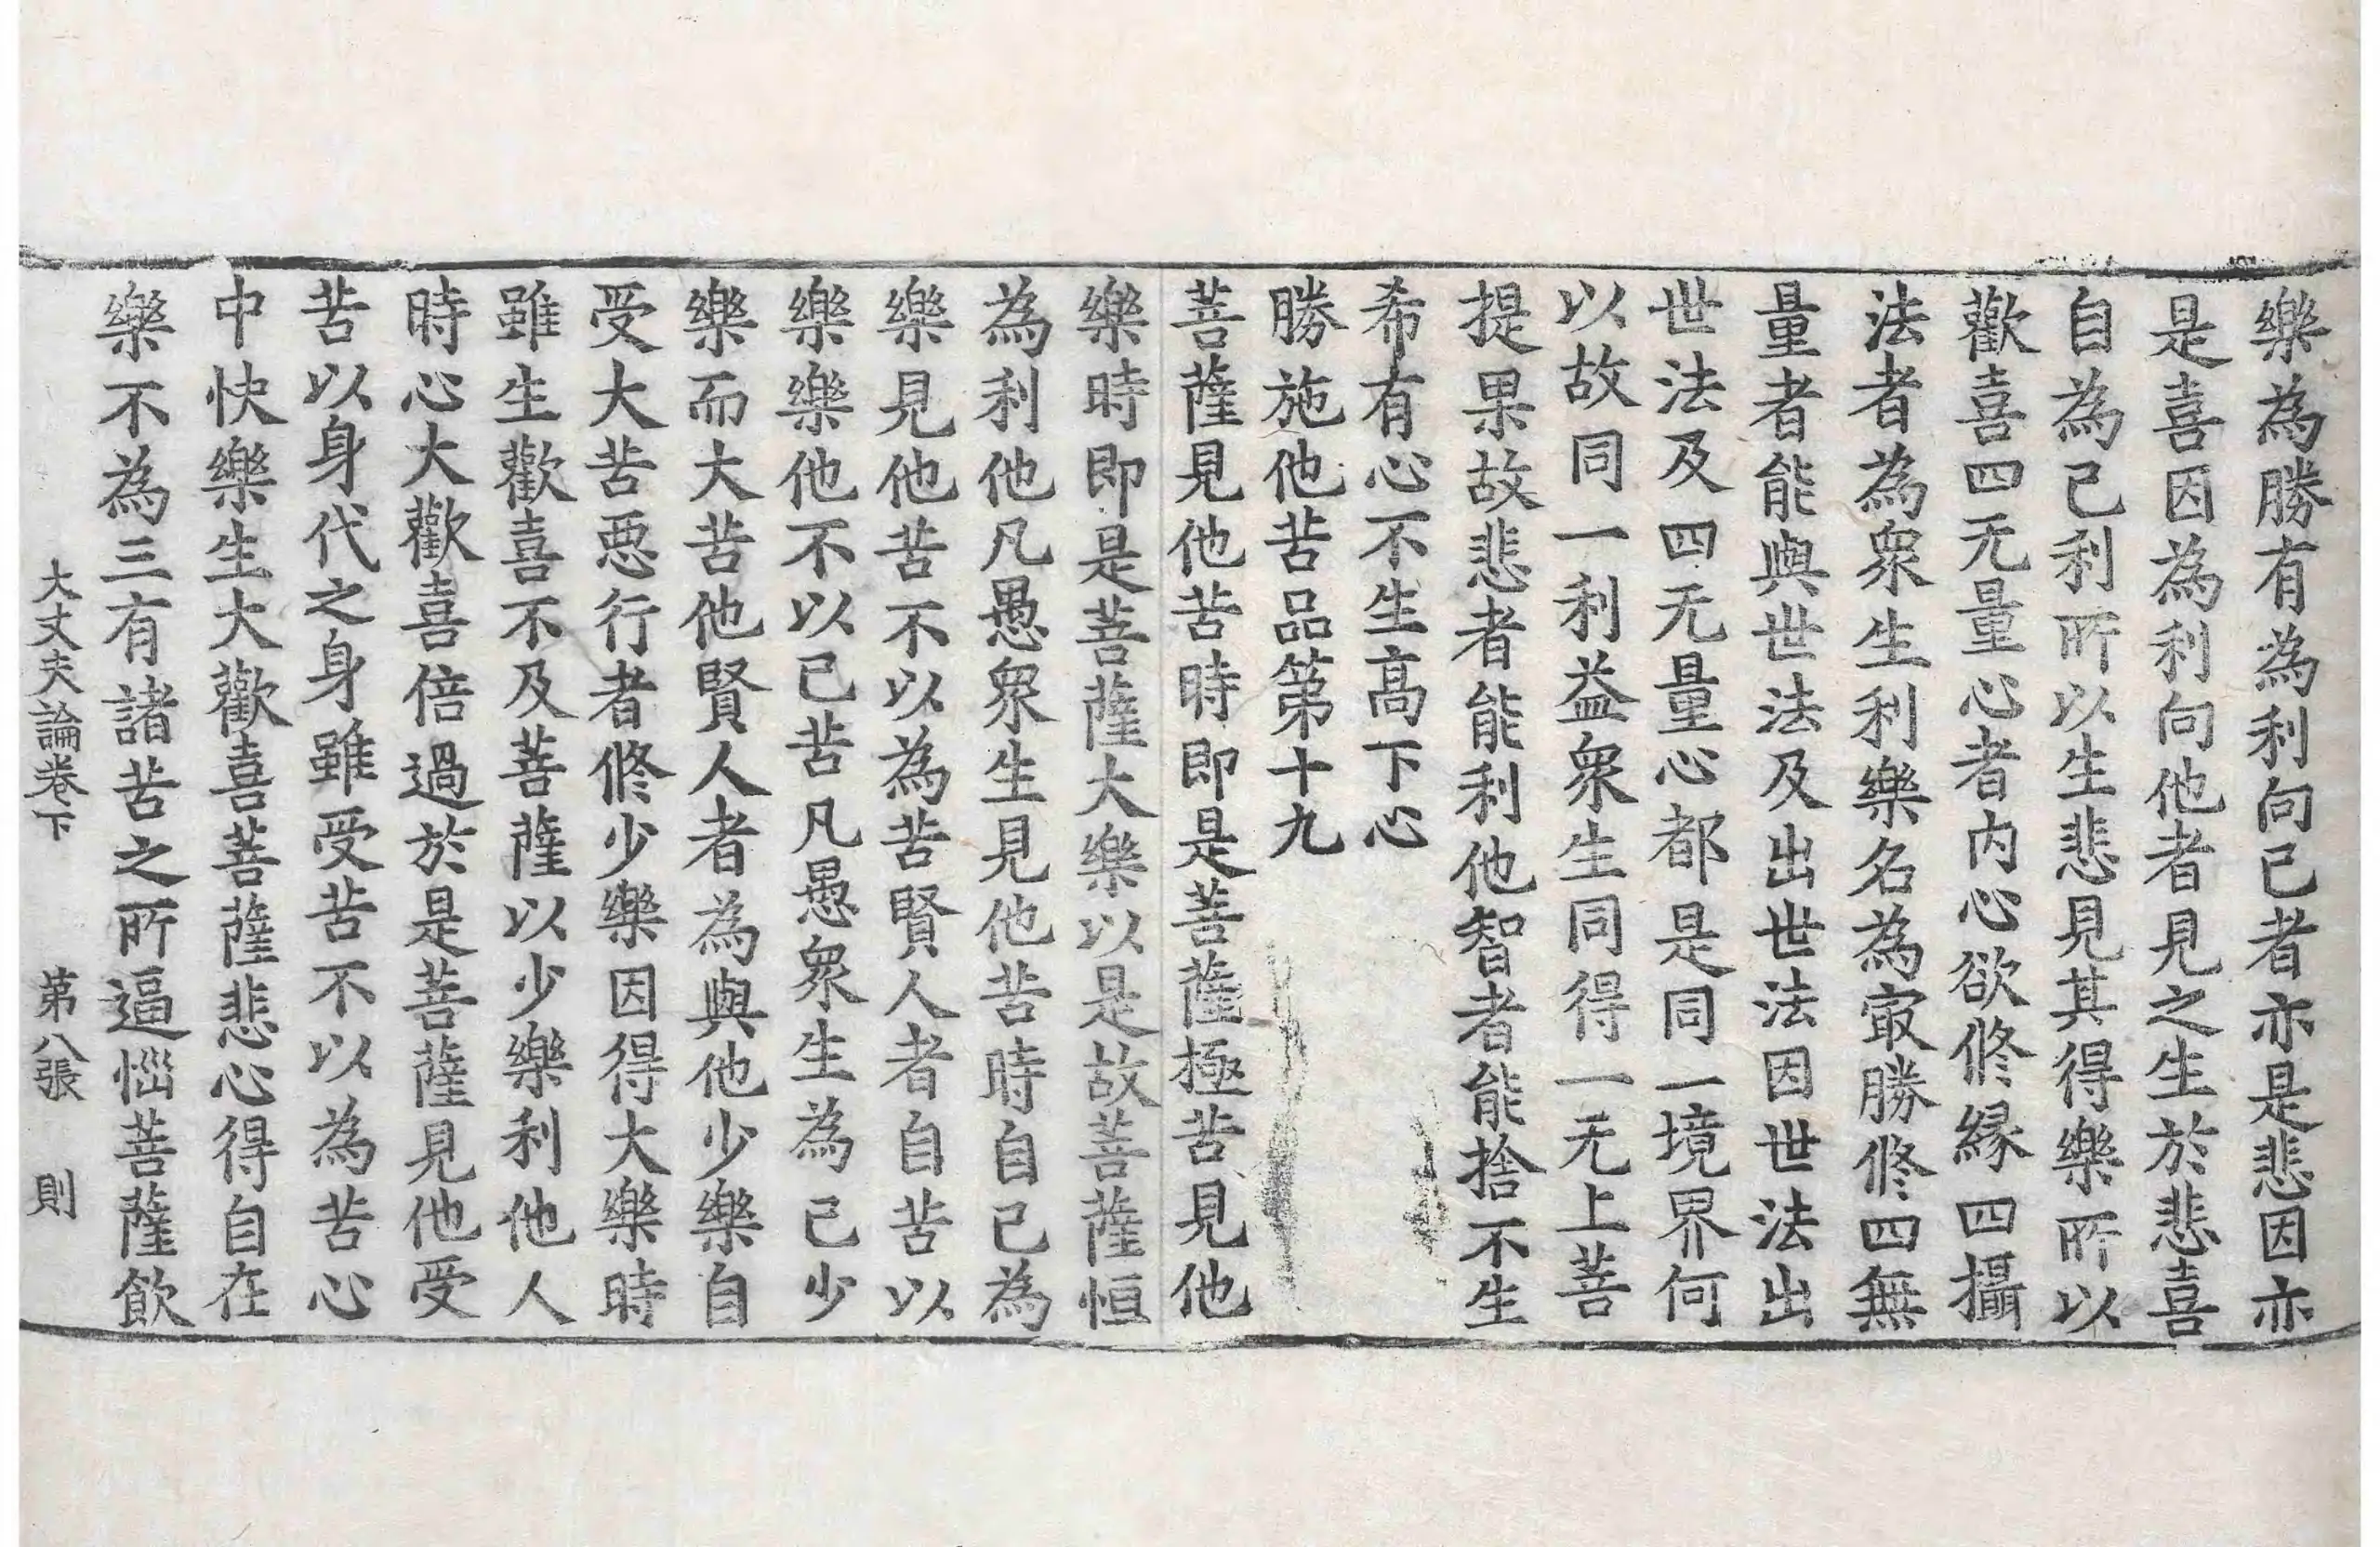 樂為勝有為利向己者亦是悲因亦
是喜因為利向他者見之生於悲喜
自為己利所以生悲見其得樂所以
歡喜四无量心者內心欲修緣四攝
法者為眾生利樂名為㝡勝修四無
量者能與世法及出世法因世法出
世法及四无量心都是同一境界何
以故同一利益眾生同得一无上菩
提果故悲者能利他智者能捨不生
希有心不生高下心
勝施他苦品第十九
菩薩見他苦時即是菩薩極苦見他
樂時即是菩薩大樂以是故菩薩恒
為利他凡愚眾生見他苦時自己為
樂見他苦不以為苦賢人者自苦以
樂樂他不以己苦凡愚眾生為己少
樂而大苦他賢人者為與他少樂自
受大苦惡行者修少樂因得大樂時
雖生歡喜不及菩薩以少樂利他人
時心大歡喜倍過於是菩薩見他受
苦以身代之身雖受苦不以為苦心
中快樂生大歡喜菩薩悲心得自在
樂不為三有諸苦之所逼惱菩薩飲
大丈夫論卷下 第八張 則